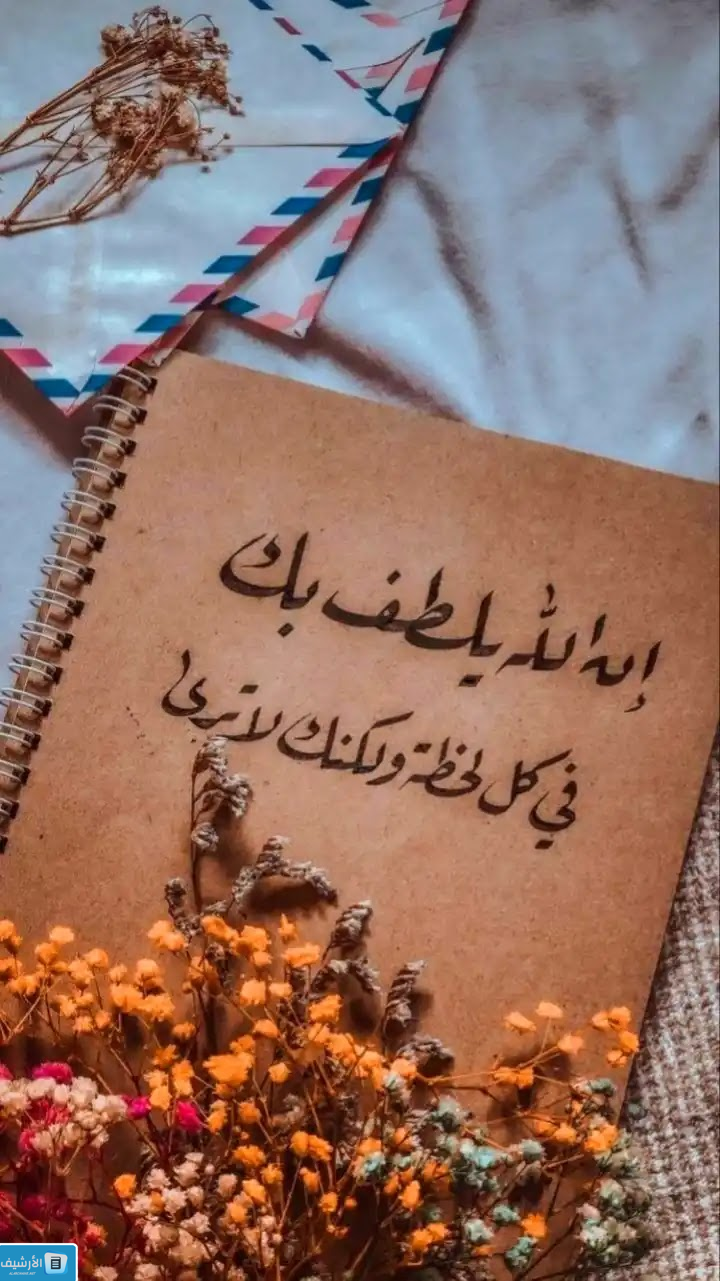 إن الله يلطف بك
في كل لحظة ولكنك لا ترى
الأرشيف